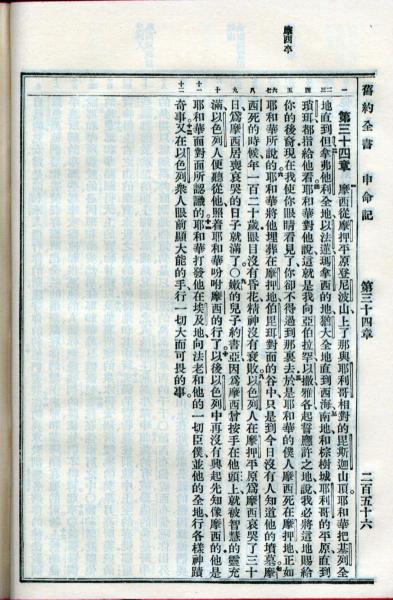 舊約全書 申命記 第三十四章 二百五十六
摩西卒
一
二三
四
五
六七
八
九
十
十一
十二
第三十四章 摩西從摩押平原登尼波山上了那與耶利哥相對的毘斯迦山頂、耶和華把基列全
地直到但、拿弗他利全地、以法蓮瑪拿西的地、猶大全地直到西海、南地、和棕樹城耶利哥的平原、直到
瑣珥、都指給他看。耶和華對他說、這就是我向亞伯拉罕以撒雅各起誓應許之地、說、我必將這地賜給
你的後裔、現在我使你眼睛看見了、你卻不得過到那裏去。於是耶和華的僕人摩西死在摩押地、正如
耶和華所說的。耶和華將他埋葬在摩押地、伯毘珥對面的谷中、只是到今日沒有人知道他的墳墓。摩
西死的時候、年一百二十歲、眼目沒有昏花、精神沒有衰敗。以色列人在摩押平原爲摩西哀哭了三十
日、爲摩西居喪哀哭的日子就滿了。○嫩的兒子約書亞、因爲摩西曾按手在他頭上、就被智慧的靈充
滿、以色列人便聽從他、照着耶和華吩咐摩西的行了。以後以色列中再沒有興起先知像摩西的、他是
耶和華面對面所認識的。耶和華打發他在埃及地向法老和他的一切臣僕、並他的全地、行各樣神蹟
奇事、又在以色列衆人眼前顯大能的手、行一切大而可畏的事。